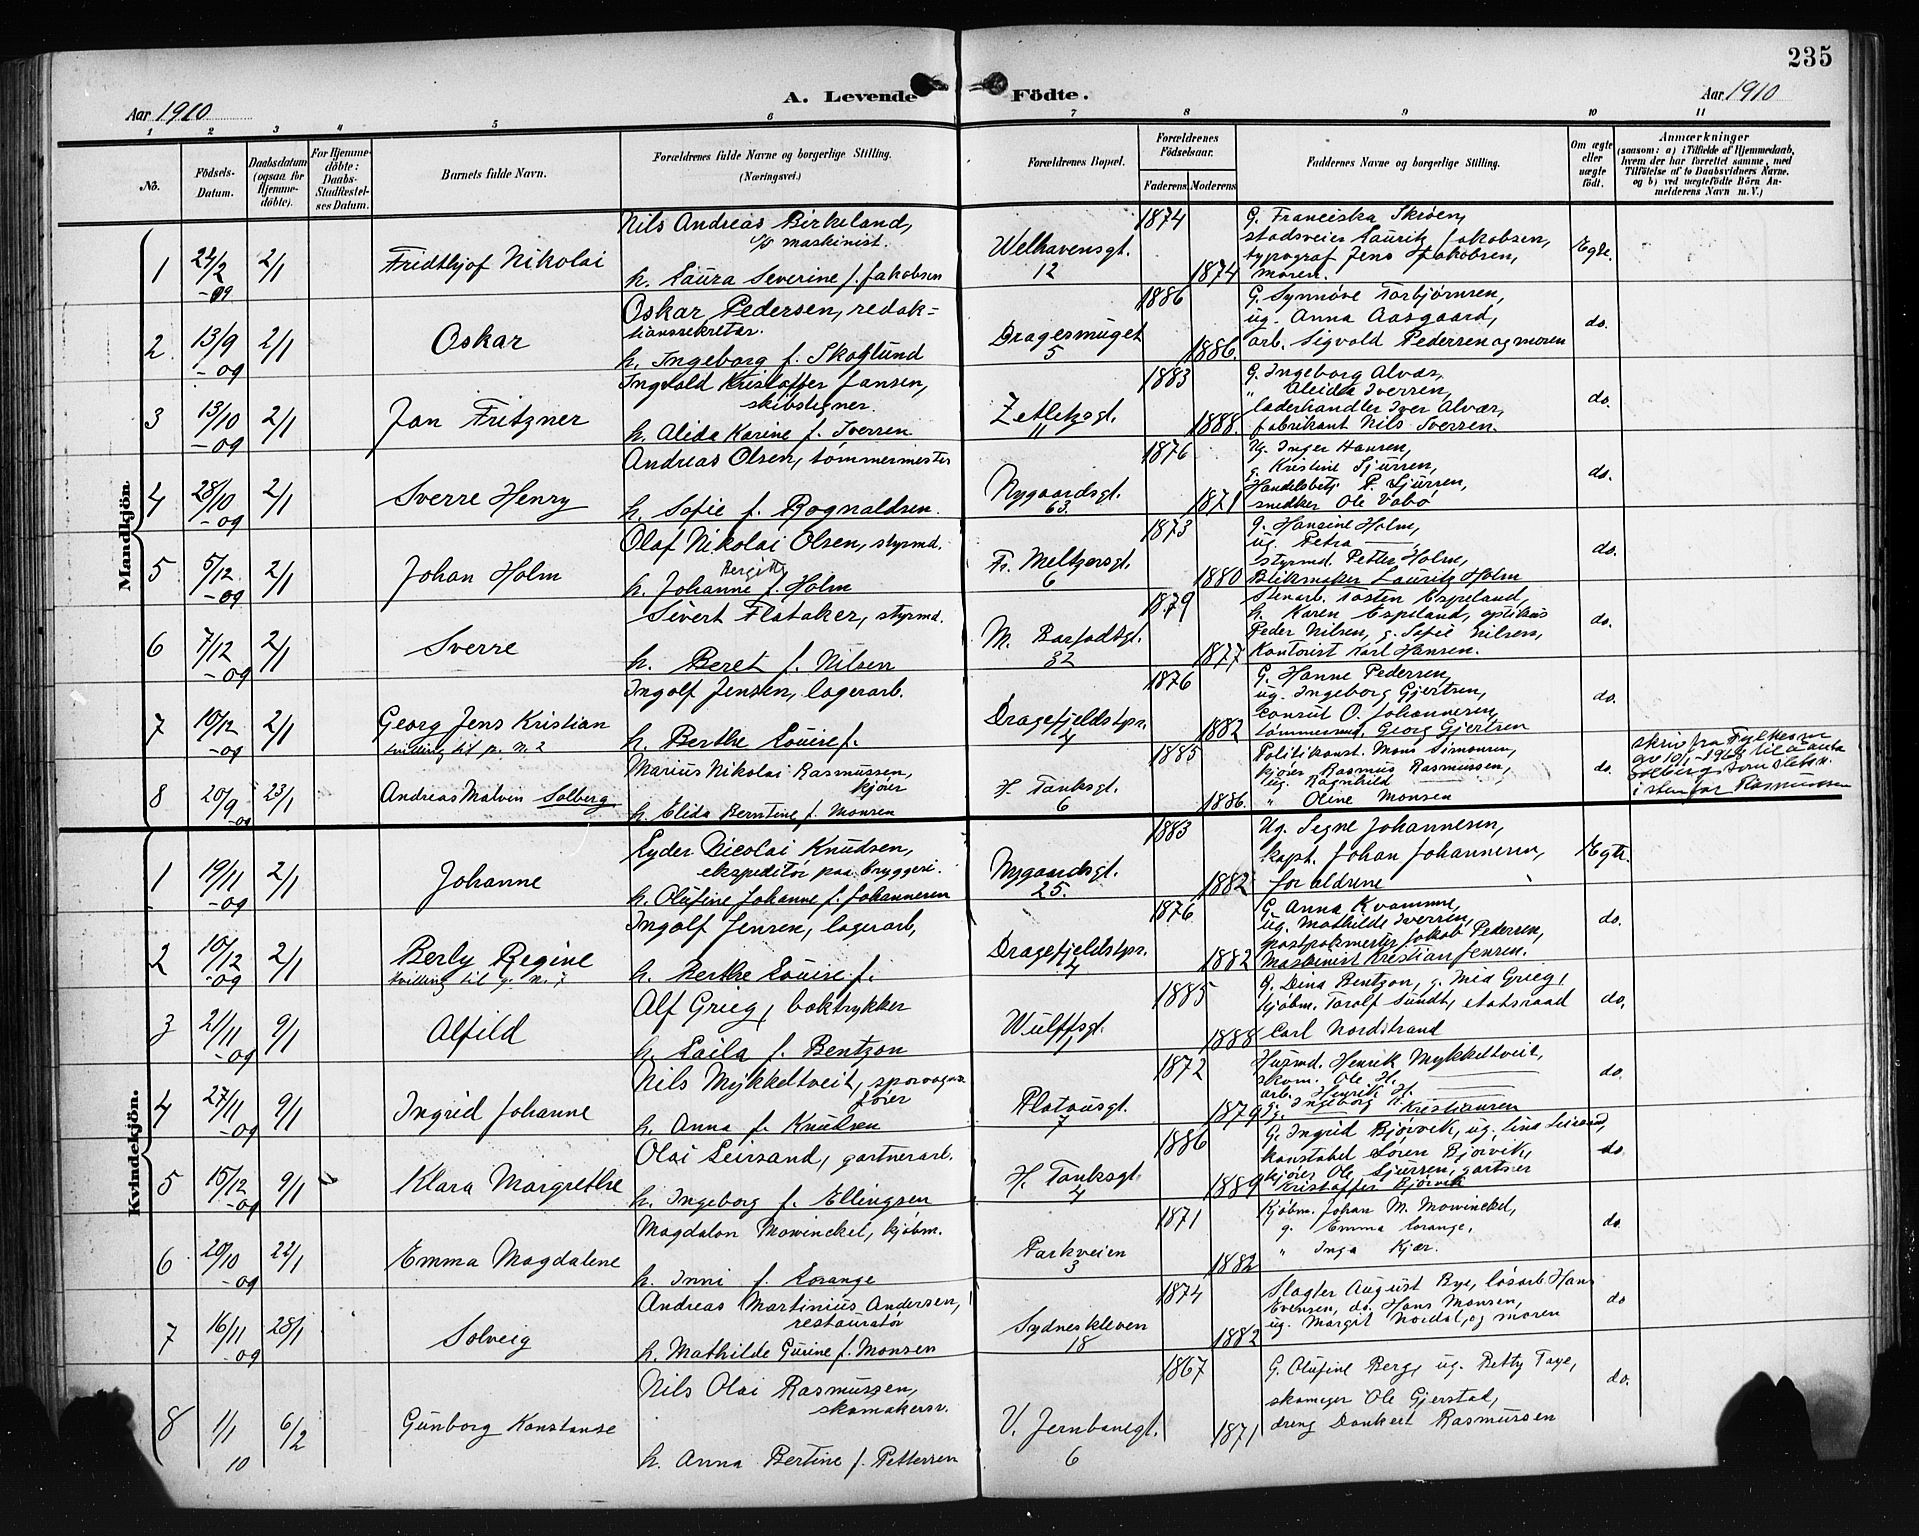 235
Aar 1910
A. Levende Födte.
Aar 1910
1 2 3 4 5 6 7 8 9 10 11
No.
Födsels-Datum.
Daabsdatum (ogsaa for Hjemme-döbte).
For Hjemme-döbte: Daabs-Stadfæstel-ses Datum.
Barnets fulde Navn.
Forældrenes fulde Navne og borgerlige Stilling.
(Næringsvei.)
Forældrenes Bopæl.
Forældrenes Födselsaar.
Faderens. Moderens.
Faddernes Navne og borgerlige Stilling.
Om ægte eller uægte födt.
Anmærkninger
(saasom: a) i Tilfælde af Hjemmedaab,
hvem der har forrettet samme, med
Tilföielse af to Daabsvidners Navne,
og b) ved uægtefödte Börn An-
melderens Navn m. V.)
Mandkjön
1 22/2 -09 2/1 Fridthjof Nikolai
Nils Andreas Birkeland,
maskinist.
h. Laura Severine f. Jakobsen
Welhavensgt. 12
1874 1874
G. Franciska Skröen,
stadsveier Lauritz Jakobsen,
typograf Jens Jakobsen,
moren.
Egte.
2 13/9 -09 2/1 Oskar
Oskar Pedersen, redak=
tionssekretær.
h. Ingeborg f. Skoglund
Dragesmuget 5
1886 1886.
G. Synnöve Torbjörnsen,
ug. Anna Aasgaard,
arb. Sigvald Pedersen og moren
do.
3 13/10 -09 2/1 Jan Fritzner
Ingvald Kristoffer Jansen,
skibsegner.
h. Alida Karine f. Iversen
Zetlitzgt. 11
1883 1888
G. Ingeborg Alvær,
" Aleida Iversen,
læderhandler Iver Alvær,
fabrikant Nils Iversen.
do.
4 28/10 -09 2/1 Sverre Henry
Andreas Olsen, tömmermester
h. Sofie f. Rognaldsen.
Nygaardsgt. 63
1876 1871
Ug. Inger Hansen,
g. Kristine Sjursen,
Handelsbetj. P. Sjursen,
snedker Ole Vabö
do.
5 5/12 -09 2/1 Johan Holm
Olaf Nikolai Olsen, styrmd.
h. Johanne Bergitte f. Holm
Fr. Meltzersgt. 6
1873 1880
G. Hansine Holm,
ug. Petra —
styrmd. Petter Holm,
Blikmaker Lauritz Holm
do.
6 7/12 -09 2/1 Sverre
Sivert Flataker, styrmd.
h. Beret f. Nilsen
M. Barfodtgt. 32
1879 1877
Stenarb. Tosten Espeland,
h. Karen Espeland, optikus
Peder Nilsen, g. Sofie Nilsen,
Kontorist Karl Hansen.
do.
7 10/12 -09 2/1 Georg Jens Kristian
tvilling til p. N. 2
Ingolf Jensen, lagerarb.
h. Berthe Louise f.
Dragefjeldstpr. 4
1876 1882
G. Hanne Pedersen,
ug. Ingeborg Gjertsen,
consul O. Johannesen,
tömmermd. Georg Gjertsen
do.
8 20/9 -09 23/1 Andreas Malvin Solberg
Marius Nikolai Rasmussen,
kjører
h. Elida Berntine f. Monsen
H. Tanksgt. 6
1885 1886.
Politikonst. Mons Simonsen,
kjører Rasmus Rasmussen,
ug. Ragnhild —
" Oline Monsen
do.
skriv fra Fylkesm
av 10/1-1968 til å anta
Solberg som slektsn.
istenfor Rasmussen
Kvindekjön.
1 19/11 -09 2/1 Johanne
Lyder Nicolai Knudsen,
ekspeditör paa bryggeri.
h. Olufine Johanne f. Johannesen
Nygaardsgt. 25.
1883 1882
Ug. Segne Johannesen,
kapt. Johan Johannesen,
forældrene
Egte.
2 10/12 -09 2/1 Berly Regine
tvilling til g. N. 7
Ingolf Jensen, lagerarb,
h. Berthe Louise f.
Dragefjeldstpr. 4
1876 1882
G. Anna Kvamme,
ug. Mathilde Iversen,
postpakmester Jakob Pedersen,
Maskinist Kristian Jensen.
do.
3 21/11 -09 9/1 Alfild
Alf Grieg, boktrykker
h. Laila f. Bentzon
Wulffsgt. 1
1885 1888
G. Dina Bentzon, g. Mia Grieg,
kjöbm. Torolf Sundt, etatsraad
Carl Nordstrand
do.
4 27/11 -09 9/1 Ingrid Johanne
Nils Mykkeltveit, sporvogns
förer
h. Anna f. Knudsen
Platousgt. 7
1872 1879
Husmd. Henrik Mykkeltveit,
skom. Ole H. —
arb. Henrik H. —
g. Ingeborg K. —
g. — Kristiansen
do.
5 15/12 -09 9/1 Klara Margrethe
Olai Leirsand, gartnerarb.
h. Ingeborg f. Ellingsen
H. Tanksgt. 4
1886 1889
G. Ingrid Björvik, ug. Lina Leirsand,
konstabel Sören Björvik,
kjører Ole Sjursen, gartner
Kristoffer Björvik
do.
6 20/10 -09 22/1 Emma Magdalene
Magdalon Mowinckel, kjöbm.
h. Inni f. Lorange
Parkveien 3
1871 1882
Kjöbm. Johan M. Mowinckel,
g. Emma Lorange,
" Inga Kjær.
do.
7 16/11 -09 28/1 Solveig
Andreas Martinius Andersen,
restauratör
h. Mathilde Gurine f. Monsen
Sydneskleven 18
1874 1882
Slagter August Bye, lösarb. Hans
Evensen, do. Hans Monsen,
ug. Margit Nordal, og moren
do
8 1/1 10 6/2 Gunborg Konstanse
Nils Olai Rasmussen,
skomakersv.
h. Anna Bertine f. Pettersen
V. Jernbanegt. 6
1867 1871
G. Olufine Berg, ug. Betty Faye,
skomager Ole Gjerstad,
dreng Dankert Rasmussen
do.